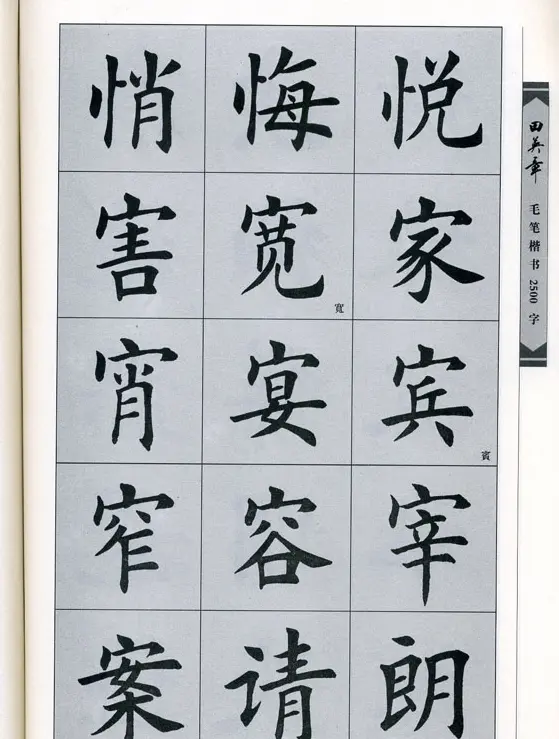 悄 悔 悦
害 宽 家
寬
宵 宴 宾
賓
窄 容 宰
案 请 朗
田英章
毛笔楷书2500字